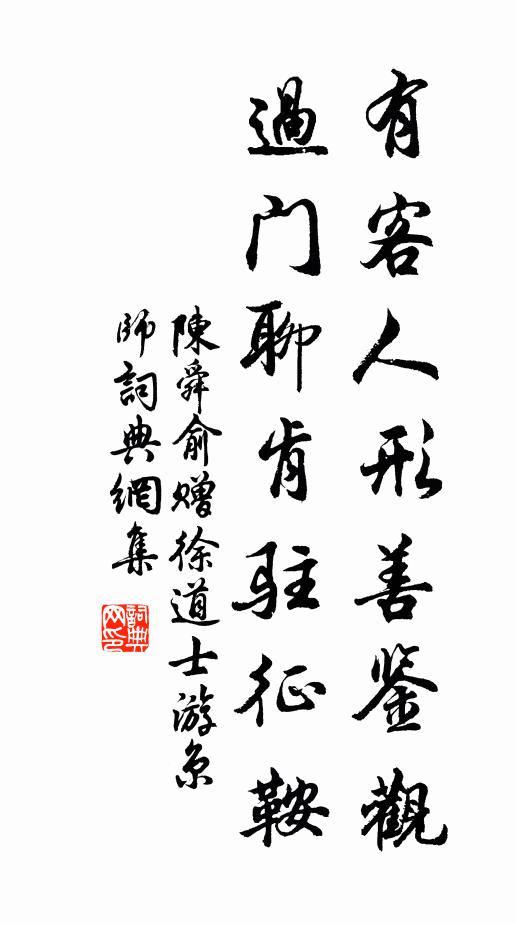 有客人形善鉴觀
過门聊肯駐征鞍
陳舜俞赠徐道士游京
師詞典網集
詞典网印